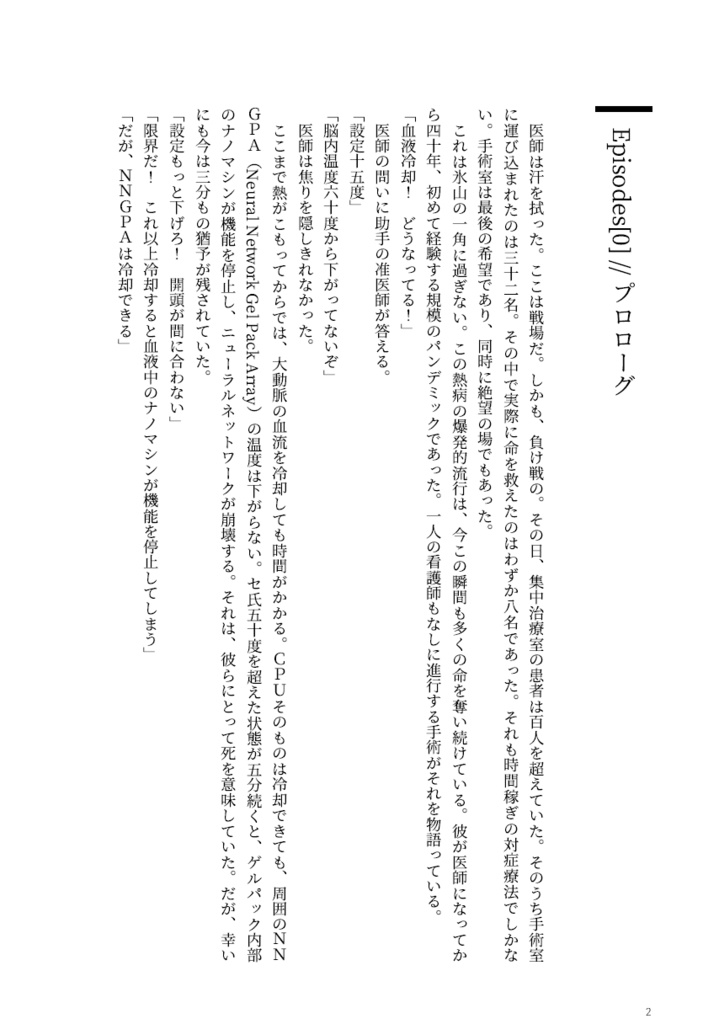 Episodes[0] // プロローグ
　医師は汗を拭った。ここは戦場だ。しかも、負け戦の。その日、集中治療室の患者は百人を超えていた。そのうち手術室
に運び込まれたのは三十二名。その中で実際に命を救えたのはわずか八名であった。それも時間稼ぎの対症療法でしかな
い。手術室は最後の希望であり、同時に絶望の場でもあった。
　これは氷山の一角に過ぎない。この熱病の爆発的流行は、今この瞬間も多くの命を奪い続けている。彼が医師になってか
ら四十年、初めて経験する規模のパンデミックであった。一人の看護師もなしに進行する手術がそれを物語っている。
「血液冷却！　どうなってる！」
　医師の問いに助手の准医師が答える。
「設定十五度」
「脳内温度六十度から下がってないぞ」
　医師は焦りを隠しきれなかった。
　ここまで熱がこもってからでは、大動脈の血流を冷却しても時間がかかる。ＣＰＵそのものは冷却できても、周囲のＮＮ
ＧＰＡ（Neural Network Gel Pack Array）の温度は下がらない。セ氏五十度を超えた状態が五分続くと、ゲルパック内部
のナノマシンが機能を停止し、ニューラルネットワークが崩壊する。それは、彼らにとって死を意味していた。だが、幸い
にも今は三分もの猶予が残されていた。
「設定もっと下げろ！　開頭が間に合わない」
「限界だ！　これ以上冷却すると血液中のナノマシンが機能を停止してしまう」
「だが、ＮＮＧＰＡは冷却できる」
2